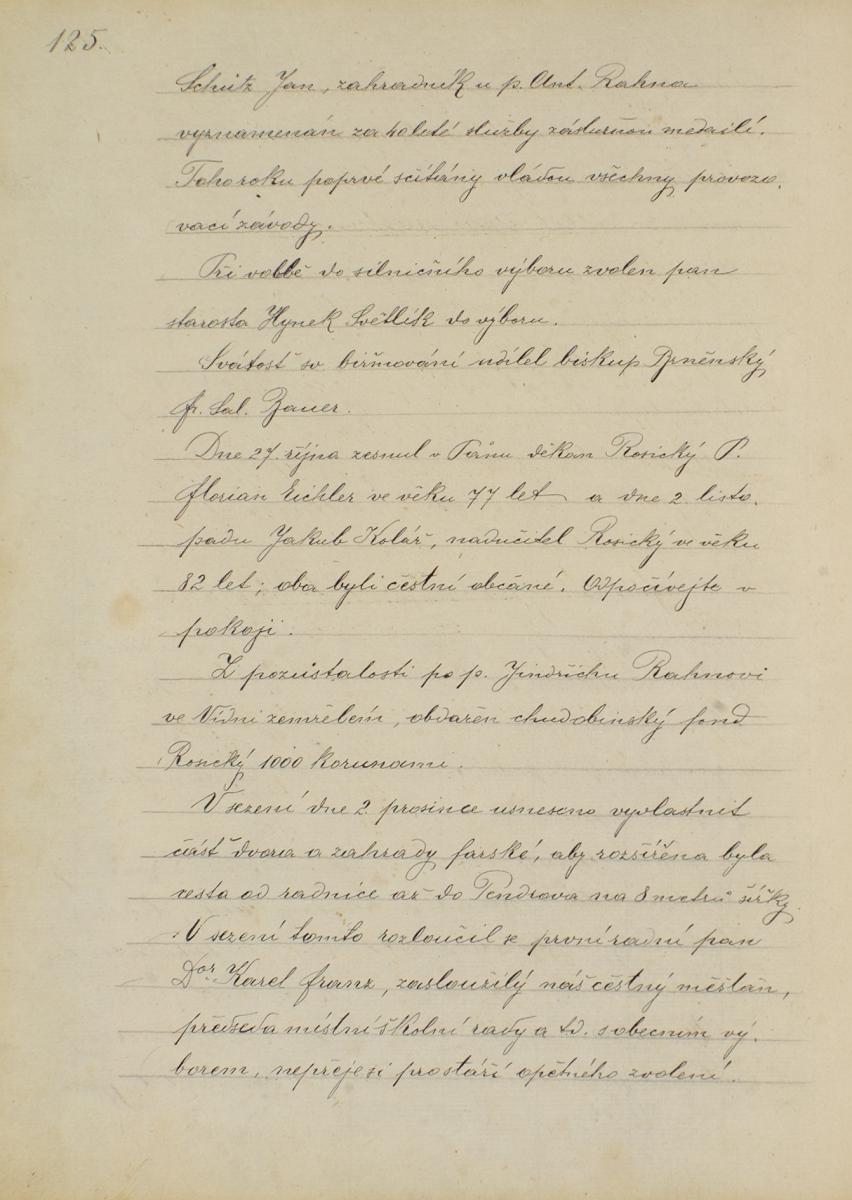 125.
Schütz Jan, zahradník u p. Ant. Rahna
vyznamenán za 40leté služby záslužnou medailí.
Toho roku poprvé sčítány vládou všechny provozo-
vací závody.
Při volbě do silničního výboru zvolen pan
starosta Hynek Světlík do výboru.
Svátost sv. biřmování udílel biskup Brněnský
Fr. Sal. Bauer.
Dne 27. října zesnul v Pánu děkan Rosický P.
Florian Eichler ve věku 77 let a dne 2. listo-
padu Jakub Kolář, nadučitel Rosický ve věku
82 let; oba byli čestní občané. Odpočívejte v
pokoji.
Z pozůstalosti po p. Jindřichu Rahnovi
ve Vídni zemřelém, obdařen chudobinský fond
Rosický 1000 korunami.
V sezení dne 2. prosince usneseno vyvlastnit
část dvora a zahrady farské, aby rozšířena byla
cesta od radnice až do Pendrova na 8 metrů šířky.
V sezení tomto rozloučil se první radní pan
Dor. Karel Franz, zasloužilý náš čestný měšťan,
předseda místní školní rady a td. s obecním vý-
borem, nepřeje si pro stáří opětného zvolení.